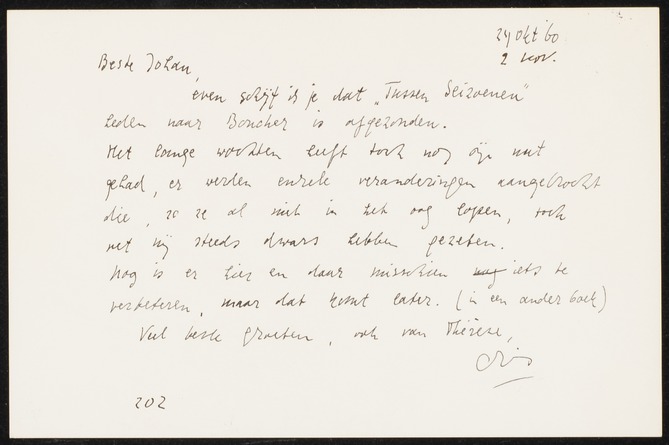 24 okt '60
2 nov.
Beste Johan,
even schrijf ik je dat „Tussen Seizoenen"
heden naar Boucher is afgezonden.
Het lange wachten heeft toch nog zijn nut
gehad, er werden enkele veranderingen aangebracht
die, zo ze al niet in het oog lopen, toch
mij steeds dwars hebben gezeten.
Nog is er hier en daar misschien nog iets te
verbeteren, maar dat komt later. (in een ander boek)
Veel beste groeten, ook van Thérèse,
202